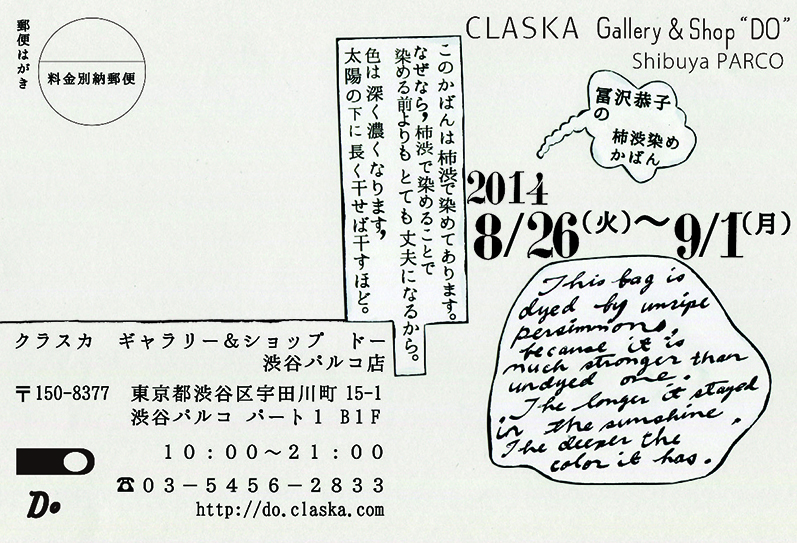 郵便はがき
料金別納郵便
CLASKA Gallery & Shop "DO"
Shibuya PARCO
冨沢恭子
の
柿渋染め
かばん
2014
8/26(火)〜9/1(月)
このかばんは柿渋で染めてあります。
なぜなら,柿渋で染めることで
染める前よりも とても 丈夫になるから。
色は 深く濃くなります,
太陽の下に 長く干せば干すほど。
This bag is
dyed by unripe
persimmons,
because it is
much stronger than
undyed one.
The longer it stayed
in the sunshine,
The deeper the
color it has.
クラスカ ギャラリー&ショップ ドー
渋谷パルコ店
〒150-8377 東京都渋谷区宇田川町 15-1
渋谷パルコ パート1 B1F
10:00〜21:00
☎03-5456-2833
http://do.claska.com
Do